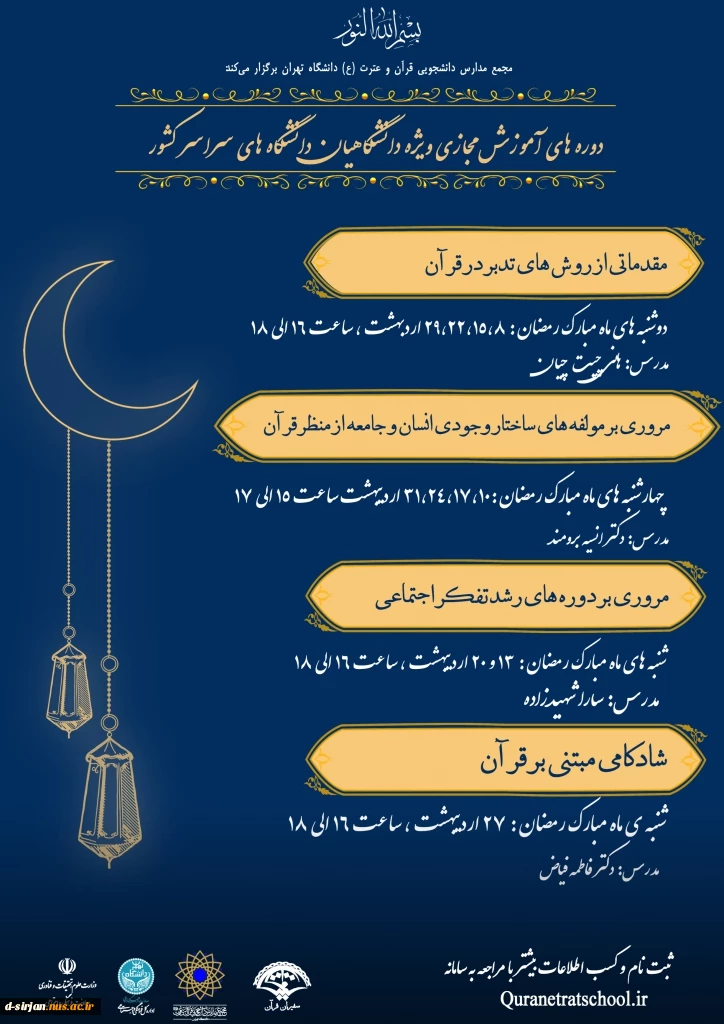 بسم الله النور
مجمع مدارس دانشجویی قرآن و عترت (ع) دانشگاه تهران برگزار می‌کند
دوره های آموزش مجازی ویژه دانشگاهیان دانشگاه های سراسر کشور
مقدماتی از روش های تدبر در قرآن
دوشنبه های ماه مبارک رمضان: ۸، ۱۵، ۲۲، ۲۹ اردیبهشت، ساعت ۱۶ الی ۱۸
مدرس: هانی چیت چیان
مروری بر مولفه های ساختار وجودی انسان و جامعه از منظر قرآن
چهارشنبه های ماه مبارک رمضان: ۱۰، ۱۷، ۲۴، ۳۱ اردیبهشت ساعت ۱۵ الی ۱۷
مدرس: دکتر انسیه برومند
مروری بر دوره های رشد تفکر اجتماعی
شنبه های ماه مبارک رمضان: ۱۳ و ۲۰ اردیبهشت، ساعت ۱۶ الی ۱۸
مدرس: سارا شهیدزاده
شادکامی مبتنی بر قرآن
شنبه ی ماه مبارک رمضان: ۲۷ اردیبهشت، ساعت ۱۶ الی ۱۸
مدرس: دکتر فاطمه فیاض
ثبت نام و کسب اطلاعات بیشتر با مراجعه به سامانه
Quranetratschool.ir
سفیران قرآن
وزارت علوم تحقیقات و فناوری
d-sirjan.nus.ac.ir